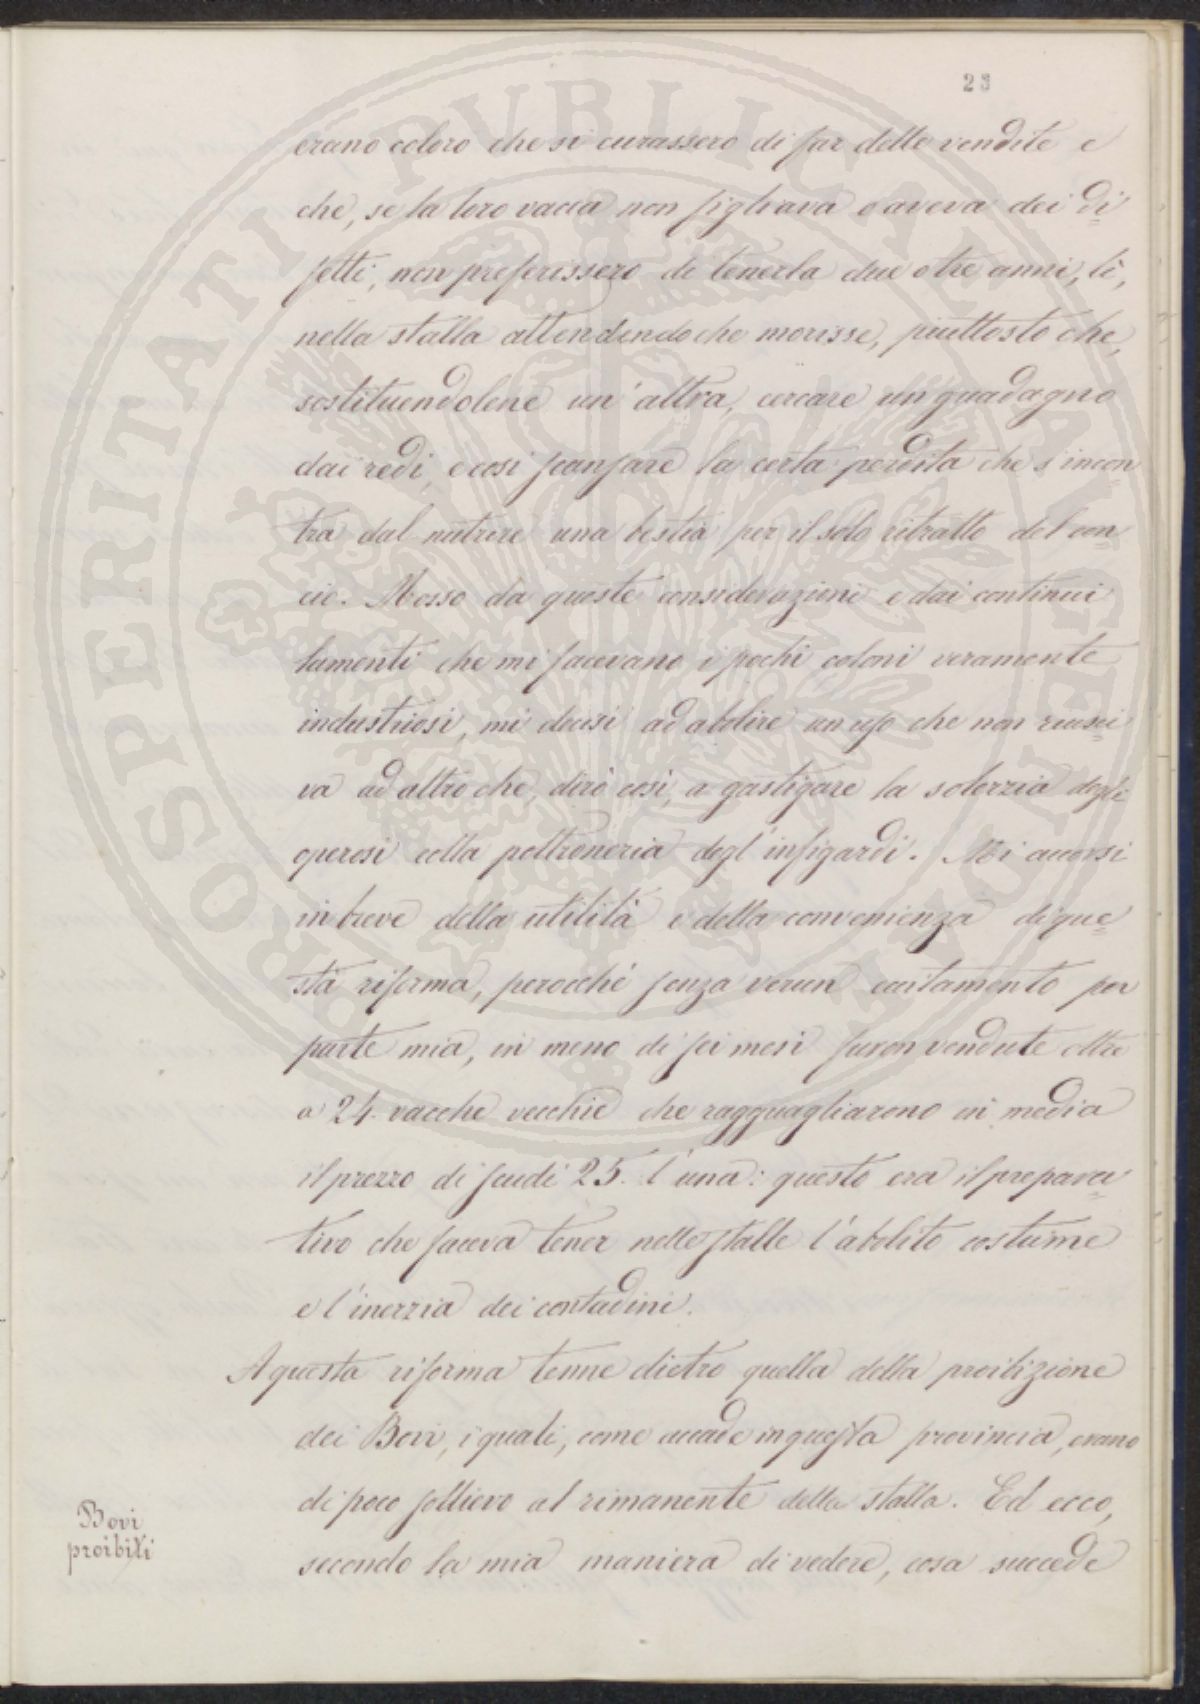 23
erano coloro che si curassero di far delle vendite e
che, se la loro vacca non figliava o aveva dei di=
fetti, non preferissero di tenerla due o tre anni, lì,
nella stalla attendendo che morisse, piuttosto che,
sostituendolene un'altra, cercare un guadagno
dai redi, e così scansare la certa perdita che s'incon=
tra dal nutrire una bestia per il solo ritratto del con=
cio. Mosso da queste considerazioni e dai continui
lamenti che mi facevano i pochi coloni veramente
industriosi, mi decisi ad abolire un uso che non riusci=
va ad altro che, dirò così, a gastigare la solerzia degli
operosi colla poltroneria degl'infigardi. Mi accorsi
in breve della utilità e della convenienza di que=
sta riforma, perocchè senza verun eccitamento per
parte mia, in meno di sei mesi furon vendute oltre
a 24. vacche vecchie che ragguagliarono in media
il prezzo di scudi 25. l'una: questo era il prepara=
tivo che faceva tener nelle stalle l'abolito costume
e l'inerzia dei contadini.
A questa riforma tenne dietro quella della proibizione
dei Bovi, i quali, come accade in questa provincia, erano
di poco sollievo al rimanente della stalla. Ed ecco,
secondo la mia maniera di vedere, cosa succede
Bovi
proibiti
PROSPERITATI PUBLICAE AUGENDAE